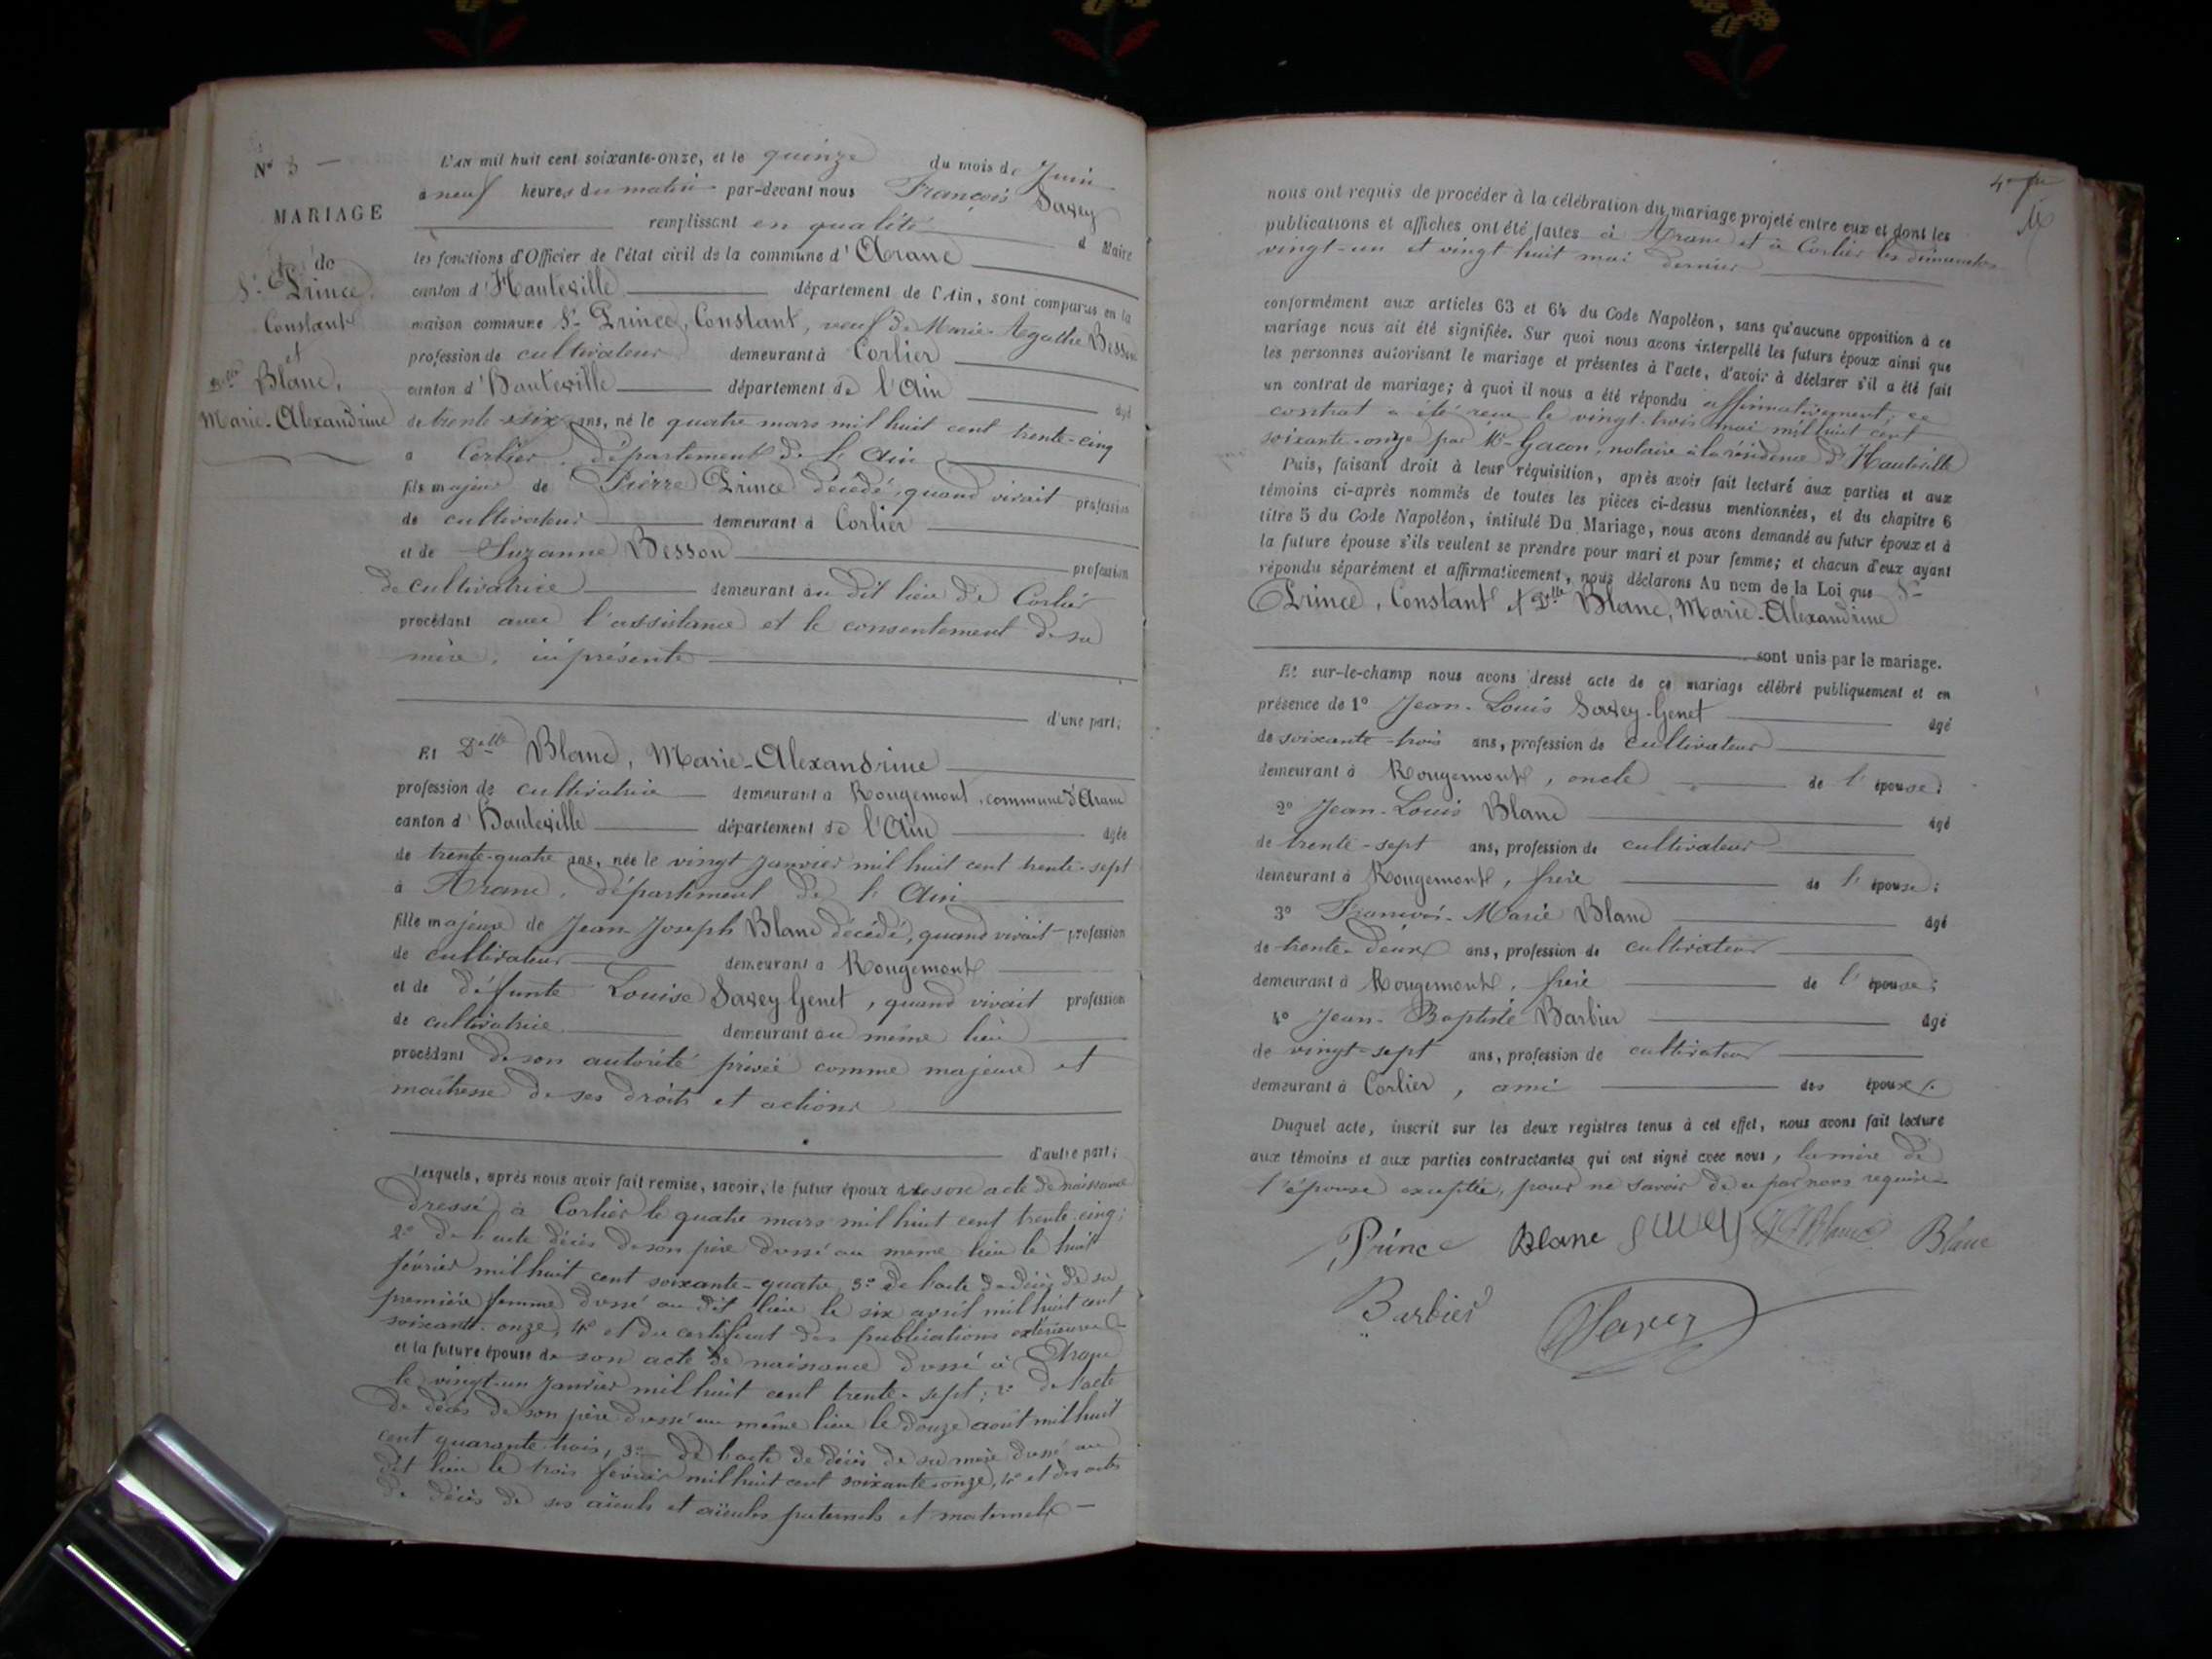 N° 3
MARIAGE
de
Sr. Prince,
Constant
et
Delle Blanc,
Marie-Alexandrine
L'AN mil huit cent soixante-onze, et le quinze du mois de Juin
à neuf heures du matin par-devant nous François Savey
remplissant en qualité d Maire
les fonctions d'Officier de l'état civil de la commune d'Aranc
canton d'Hauteville département de l'Ain, sont comparus en la
maison commune Sr. Prince, Constant, veuf de Marie-Agathe Besson
profession de cultivateur demeurant à Corlier
canton d'Hauteville département de l'Ain âgé
de trente-six ans, né le quatre mars mil huit cent trente-cinq
à Corlier, département de l'Ain
fils majeur de Pierre Prince décédé, quand vivait profession
de cultivateur demeurant à Corlier
et de Suzanne Besson profession
de cultivatrice demeurant au dit lieu de Corlier
procédant avec l'assistance et le consentement de sa
mère, ici présente
d'une part;
Et Delle Blanc, Marie-Alexandrine
profession de cultivatrice demeurant à Rougemont, commune d'Aranc
canton d'Hauteville département de l'Ain âgée
de trente-quatre ans, née le vingt janvier mil huit cent trente-sept
à Aranc, département de l'Ain
fille majeure de Jean-Joseph Blanc décédé, quand vivait profession
de cultivateur demeurant à Rougemont
et de défunte Louise Savey Genet, quand vivait profession
de cultivatrice demeurant au même lieu
procédant de son autorité privée comme majeure et
maîtresse de ses droits et actions
d'autre part;
Lesquels, après nous avoir fait remise, savoir, le futur époux de son acte de naissance
dressé à Corlier le quatre mars mil huit cent trente-cinq;
2° de l'acte décès de son père dressé au même lieu le huit
février mil huit cent soixante-quatre, 3° de l'acte de décès de sa
première femme dressé au dit lieu le six avril mil huit cent
soixante-onze, 4° et du certificat des publications extérieures
et la future épouse de son acte de naissance dressé à Aranc
le vingt-un janvier mil huit cent trente-sept; 2° de l'acte
de décès de son père dressé au même lieu le douze août mil huit
cent quarante-trois, 3° de l'acte de décès de sa mère dressé au
dit lieu le trois février mil huit cent soixante-onze, 4° et des actes
de décès de ses aïeuls et aïeules paternels et maternels
nous ont requis de procéder à la célébration du mariage projeté entre eux et dont les
publications et affiches ont été faites à Aranc et à Corlier les dimanches
vingt-un et vingt huit mai dernier
conformément aux articles 63 et 64 du Code Napoléon, sans qu'aucune opposition à ce
mariage nous ait été signifiée. Sur quoi nous avons interpellé les futurs époux ainsi que
les personnes autorisant le mariage et présentes à l'acte, d'avoir à déclarer s'il a été fait
un contrat de mariage; à quoi il nous a été répondu affirmativement; ce
contrat a été reçu le vingt-trois mai mil huit cent
soixante-onze par Me Gacon, notaire à la résidence d'Hauteville
Puis, faisant droit à leur réquisition, après avoir fait lecture aux parties et aux
témoins ci-après nommés de toutes les pièces ci-dessus mentionnées, et du chapitre 6
titre 5 du Code Napoléon, intitulé Du Mariage, nous avons demandé au futur époux et à
la future épouse s'ils veulent se prendre pour mari et pour femme; et chacun d'eux ayant
répondu séparément et affirmativement, nous déclarons Au nom de la Loi que Sr.
Prince, Constant et Delle Blanc, Marie-Alexandrine
sont unis par le mariage.
Et sur-le-champ nous avons dressé acte de ce mariage célébré publiquement et en
présence de 1° Jean-Louis Savey-Genet âgé
de soixante-trois ans, profession de cultivateur
demeurant à Rougemont, oncle de l'épouse;
2° Jean-Louis Blanc âgé
de trente-sept ans, profession de cultivateur
demeurant à Rougemont, frère de l'épouse;
3° François-Marie Blanc âgé
de trente-deux ans, profession de cultivateur
demeurant à Rougemont, frère de l'épouse;
4° Jean-Baptiste Barbier âgé
de vingt-sept ans, profession de cultivateur
demeurant à Corlier, ami des époux.
Duquel acte, inscrit sur les deux registres tenus à cet effet, nous avons fait lecture
aux témoins et aux parties contractantes qui ont signé avec nous, la mère de
l'épouse exceptée, pour ne savoir de ce par nous requise
Prince Blanc Savey Blanc Blanc
Barbier Savey